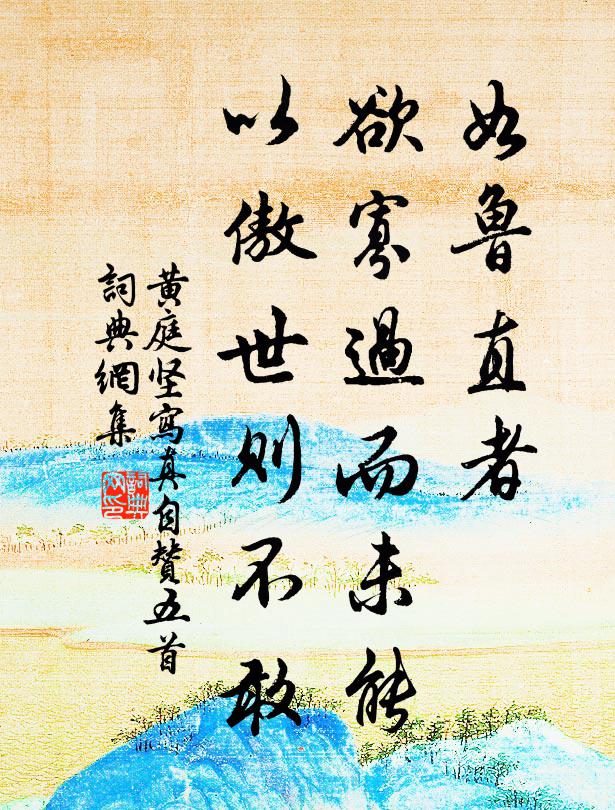 如鲁直者
欲寡過而未能
以傲世则不敢
黄庭坚寫真自赞五首
詞典網集